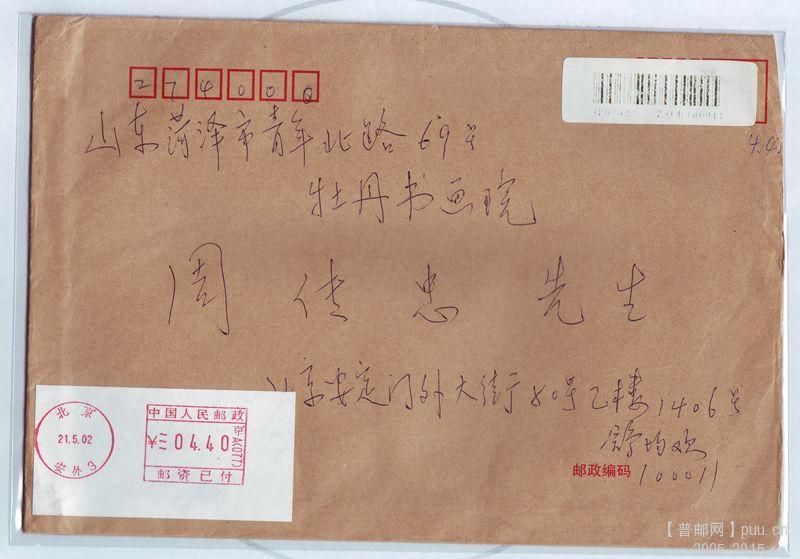 274000
山东菏泽市青年北路69号
牡丹书画院
周传忠先生
北京安定门外大街80号乙楼1406号
舒均欢
邮政编码 100011
北京
21.5.02
安外3
中国人民邮政
¥三04.40
京A(077)
邮资已付
【普邮网】puu.cn
2005-2015